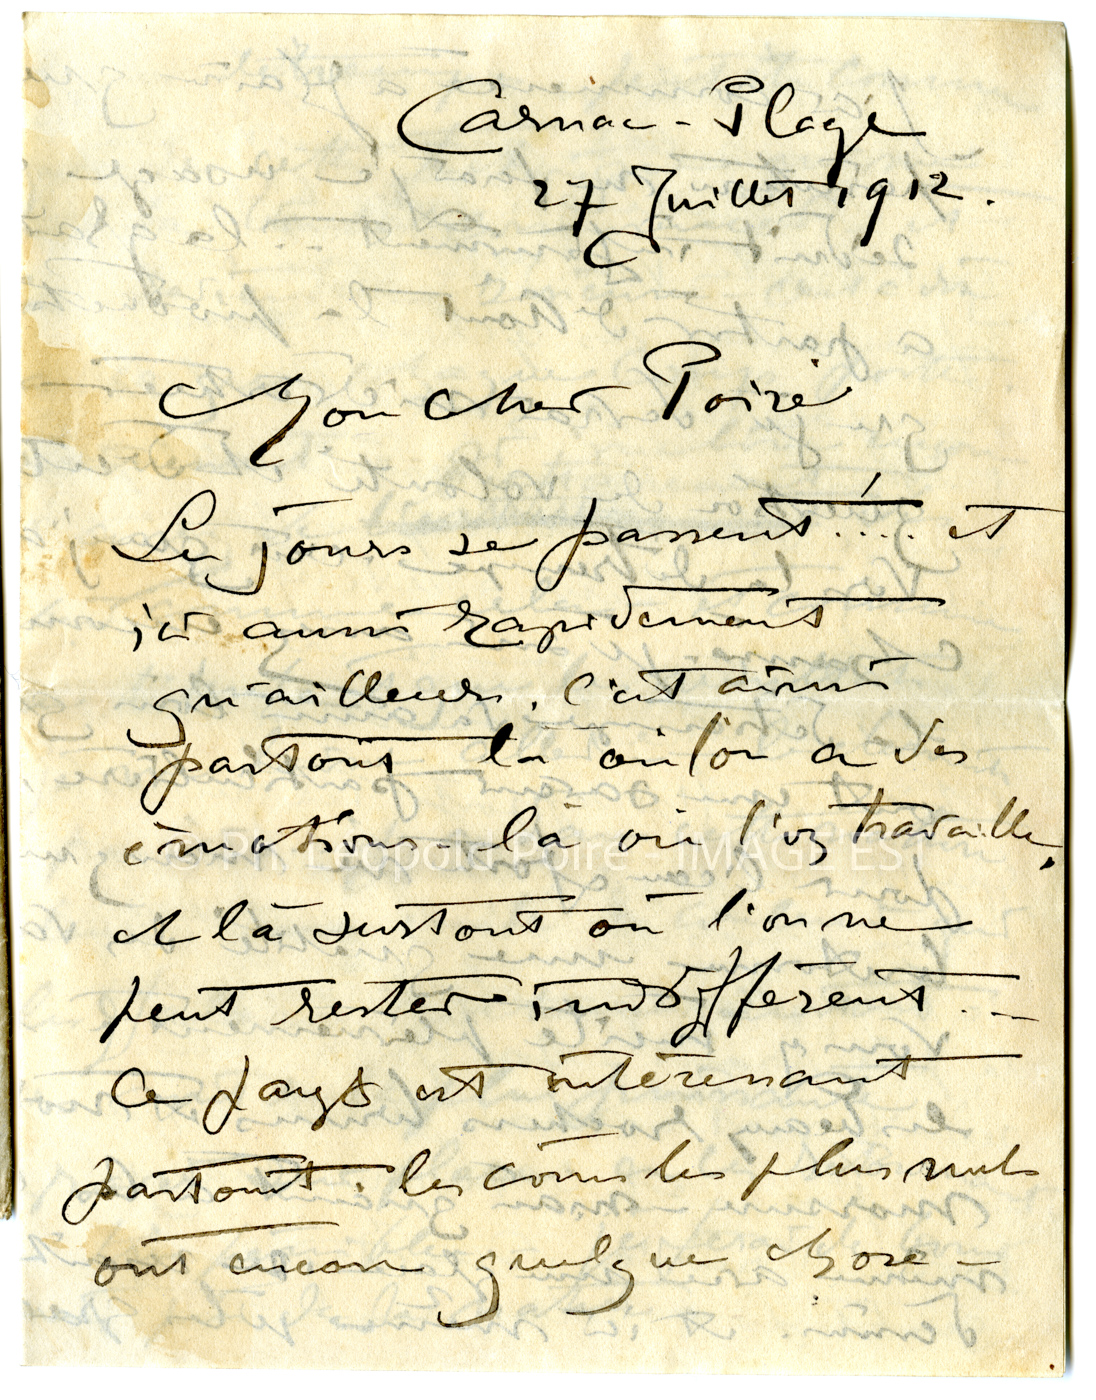 Carnac-Plage
27 Juillet 1912.
Mon cher Poiré
Les jours se passent!.... et
ici aussi rapidement
qu'ailleurs. C'est ainsi
partout là où l'on a des
émotions - là où l'on travaille,
et là surtout où l'on ne
peut rester indifférent...
Ce pays est intéressant
partout. les coins les plus nuls
ont encore quelque chose -
© Ph. Léopold Poiré - IMAGE'EST